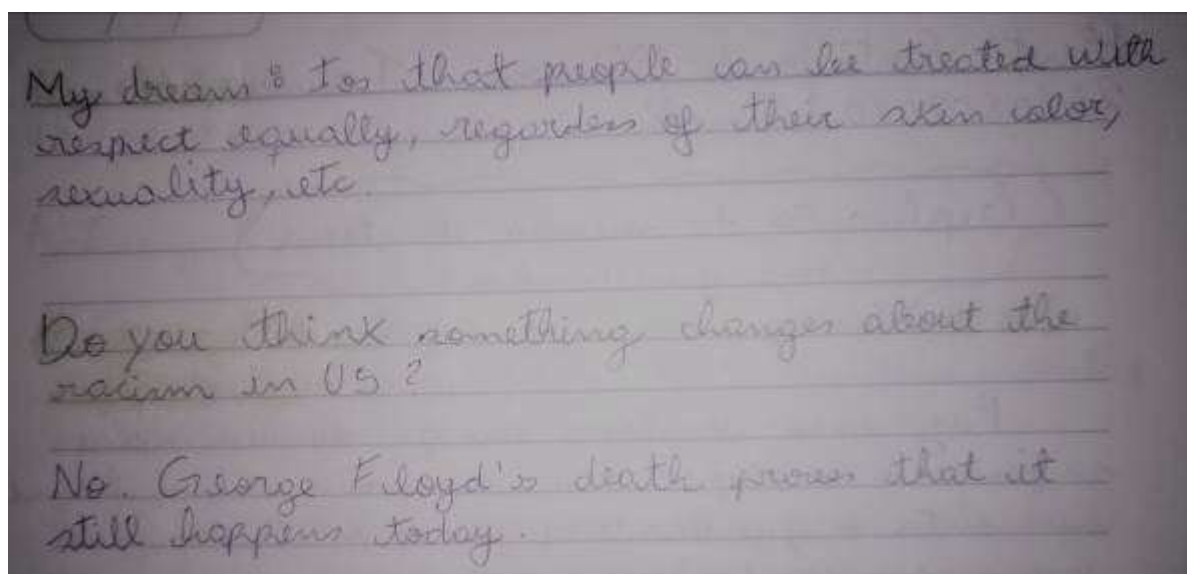 My dream: Is that people can be treated with
respect equally, regardess of their skin color,
sexuality, etc.
Do you think something changes about the
racism in US?
No. George Floyd's death proves that it
still happens today.